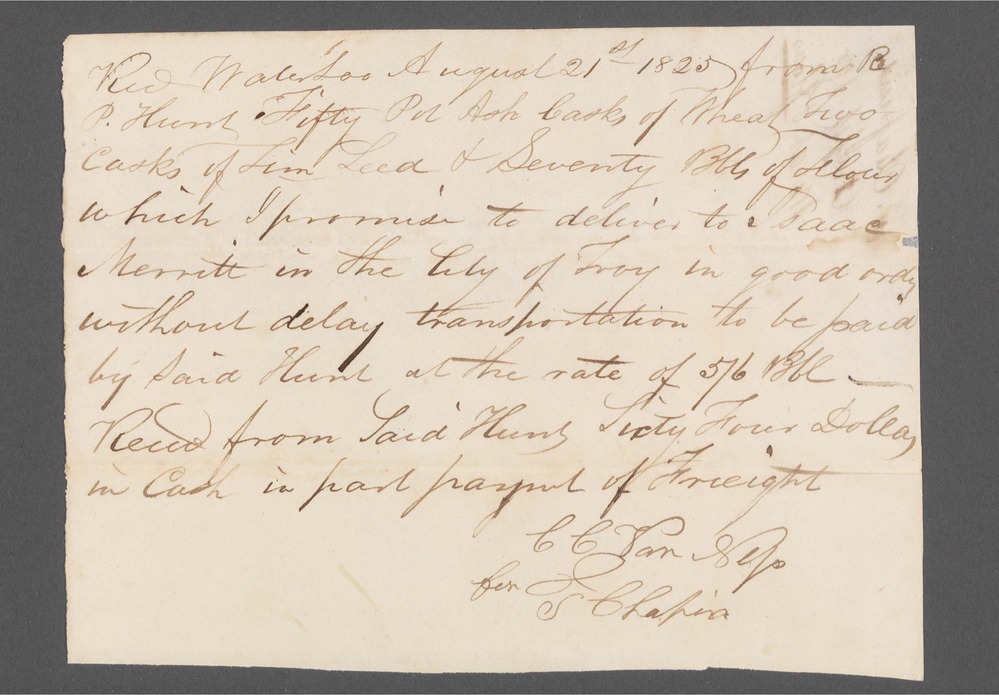 Recd Waterloo August 21st 1825 from R
P. Hunt Fifty Pot Ash Casks of Wheat Two
Casks of Tim Seed & Seventy Bbls of Flour
which I promise to deliver to Isaac
Merritt in the City of Troy in good order
without delay transportation to be paid
by Said Hunt at the rate of 5/6 Bbl
Recd from Said Hunt Sixty Four Dollars
in Cash in part paymt of Frieight
C C Van
for S Chapin